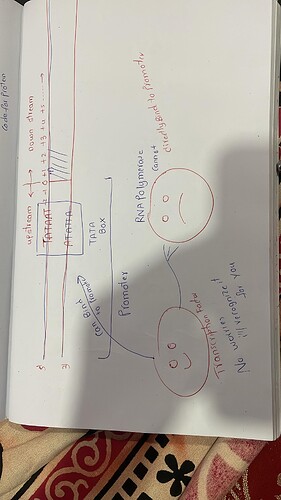 Code for Protein
upstream Down stream
5' TATAAT -1 0 +1 +2 +3 +4 +5
3' ATATTA
TATA
Box
Promoter
Can Bind
to Promoter
RNA Polymerase
Cannot
directly Bind to Promoter
Transcription Factor
No worries
recognize it
for you